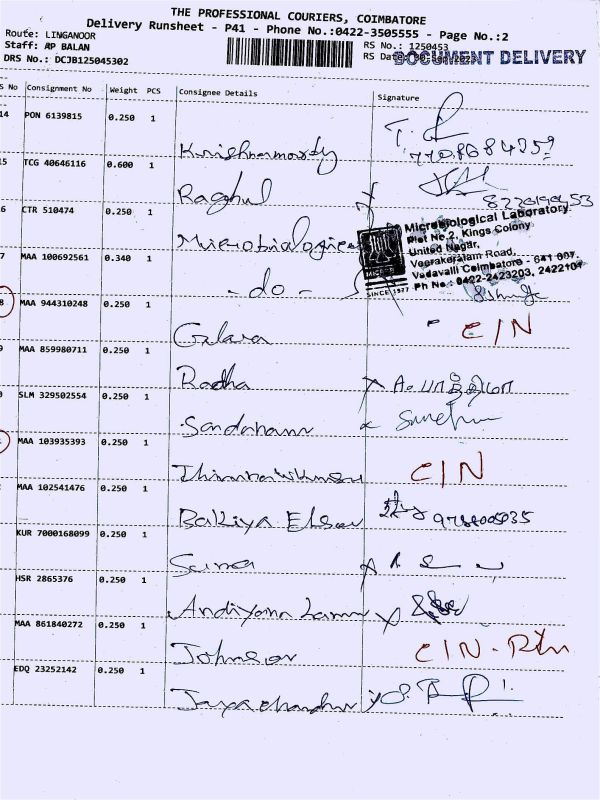 THE PROFESSIONAL COURIERS, COIMBATORE
Delivery Runsheet - P41 - Phone No.:0422-3505555 - Page No.:2
Route: LINGANOOR
Staff: AP BALAN
DRS No.: DCJB125045302
RS No.: 1250453
RS Date
DOCUMENT DELIVERY
S No Consignment No Weight PCS Consignee Details Signature
14 PON 6139815 0.250 1 Krishnamoorty
15 TCG 40646116 0.600 1 Raghul
6 CTR 510474 0.250 1 Microbiological
Microbiological Laboratory
Plot No.2, Kings Colony
United Nagar,
Veerakeralam Road,
Vadavalli Coimbatore - 641 007.
Ph No : 0422-2423203, 2422104
SINCE 1977
7 MAA 100692561 0.340 1 - do -
8 MAA 944310248 0.250 1 C/N
9 MAA 859980711 0.250 1 Radha
SLM 329502554 0.250 1
MAA 103935393 0.250 1 C/N
MAA 102541476 0.250 1 Bakkiya
KUR 7000168099 0.250 1
HSR 2865376 0.250 1
MAA 861840272 0.250 1 Johnson C/N - Rtn
EDQ 23252142 0.250 1 Jayachandran